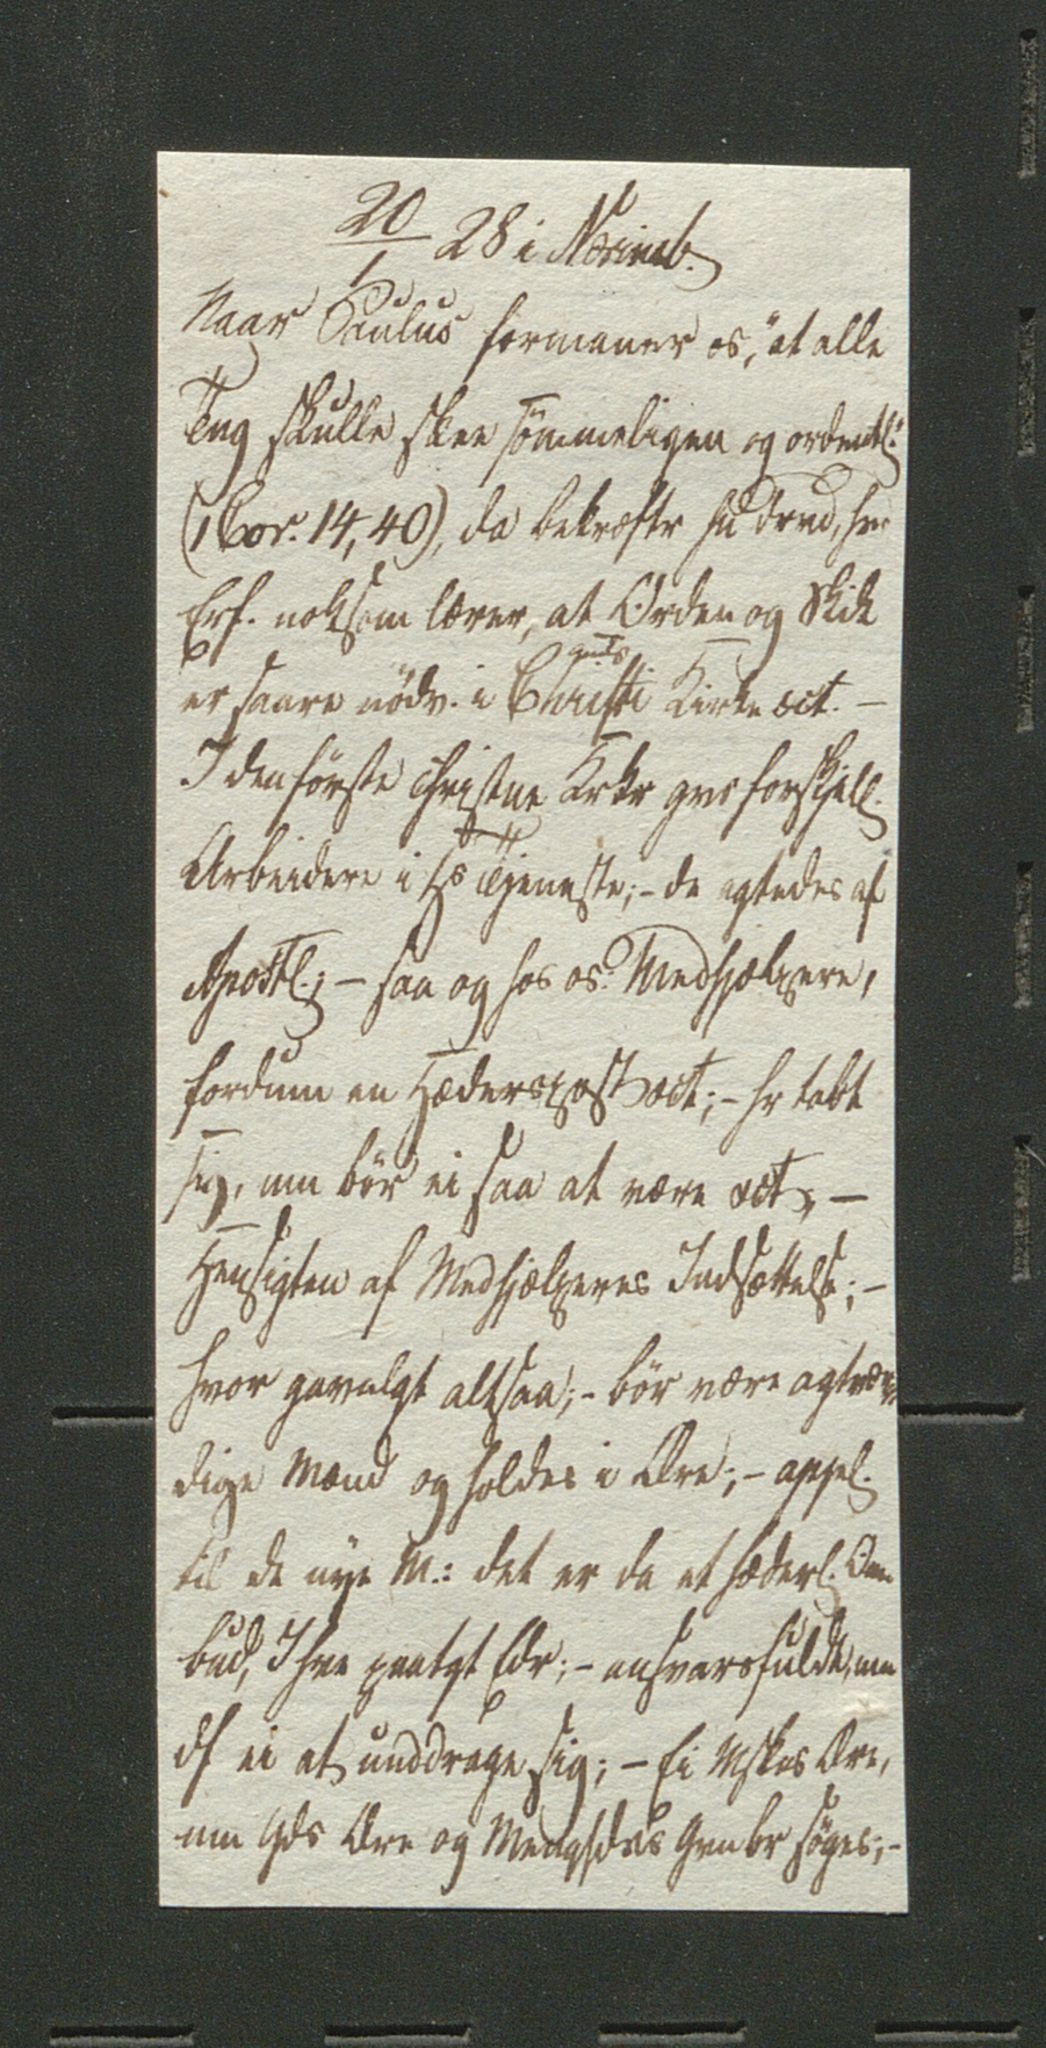 20/1 28 i Næsinub.
Naar Paulus formaner os, "at alle
Ting skulle skee sømmeligen og ordentl."
(1 Cor. 14, 40), da bekræftr hn drvd, hvd
Erf. noksom lærer, at Orden og Skik
er saare nödv. i Christi Kirke oct. –
I den første christne Krke gvs forskjell.
Arbeidere i Hs Tjeneste; – de agtedes af
Apostl.; – saa og hos os: Medhjælpere,
fordum en Hæderspost oct; – hr tabt
sig, mn bör ei saa at være oct, –
Hensigten af Medhjælperes Indsættelse; –
hvor gavnligt altsaa; – bör være agtvær-
dige Mænd og holdes i Ære; – appel.
til de nye M.: det er da et hæderl. Om-
bud, I hve paatgt Edr; – ansvarsfuldt, mn
df ei at unddrage sig; – Ei Mskes Ære,
mn Gds Ære og Mengheds Gvn br söges; –